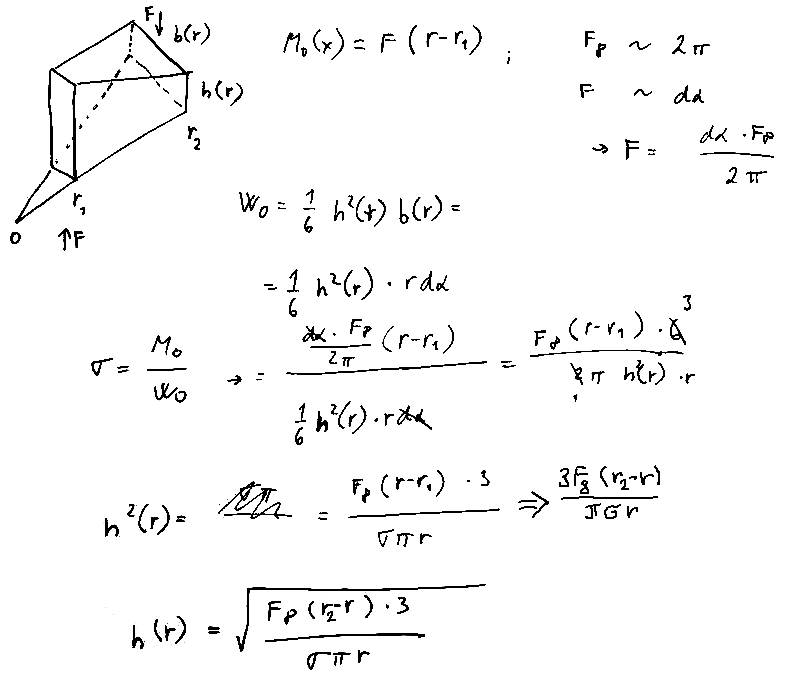 F↓ b(r)
h(r)
r₂
r₁
0
↑F
M₀(x) = F (r-r₁) ;
Fₚ ~ 2π
F ~ dα
→ F = dα · Fₚ / 2π
W₀ = 1/6 h²(r) b(r) =
= 1/6 h²(r) · r dα
σ = M₀ / W₀ → = (dα · Fₚ / 2π (r-r₁)) / (1/6 h²(r) · r dα) = Fₚ (r-r₁) · 6 3 / 2π h²(r) · r
h²(r) = = Fₚ (r-r₁) · 3 / σπr ⇒ 3F₈ (r₂-r) / πσr
h(r) = √(Fₚ (r₂-r) · 3 / σπr)